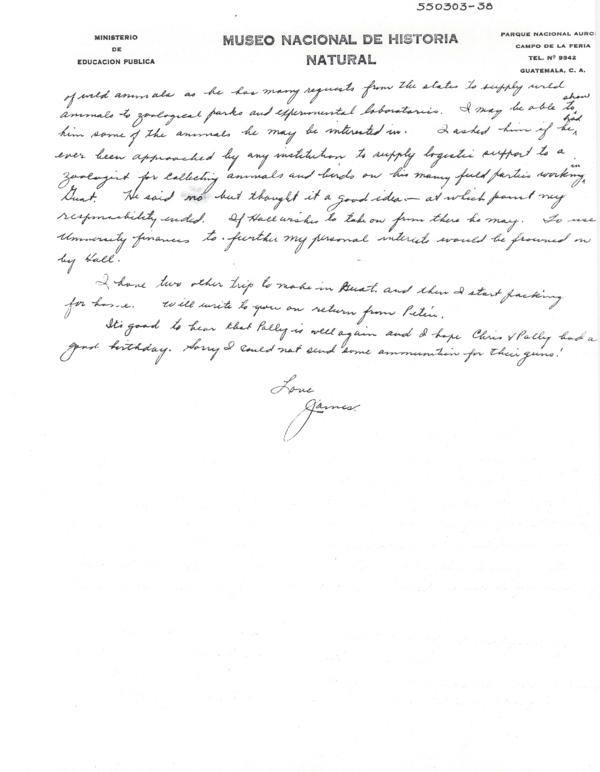 550303-38
MINISTERIO
DE
EDUCACION PUBLICA
MUSEO NACIONAL DE HISTORIA
NATURAL
PARQUE NACIONAL AURO
CAMPO DE LA FERIA
TEL. Nº 9942
GUATEMALA, C. A.
of wild animals as he has many requests from the states to supply wild
animals to zoological parks and experimental laboratories. I may be able to show
him some of the animals he may be interested in. I asked him if he had
ever been approached by any institution to supply logistic support to a
zoologist for collecting animals and birds on his many field parties working in
Guat. He said no but thought it a good idea — at which point my
responsibility ended. If Hall wishes to take on from there he may. To use
University finances to further my personal interests would be frowned on
by Hall.
I have two other trip to make in Guat. and then I start packing
for home. Will write to you on return from Petén.
It's good to hear that Polly is well again and I hope Chris & Polly had a
good birthday. Sorry I could not send some ammunition for their guns!
Love
James